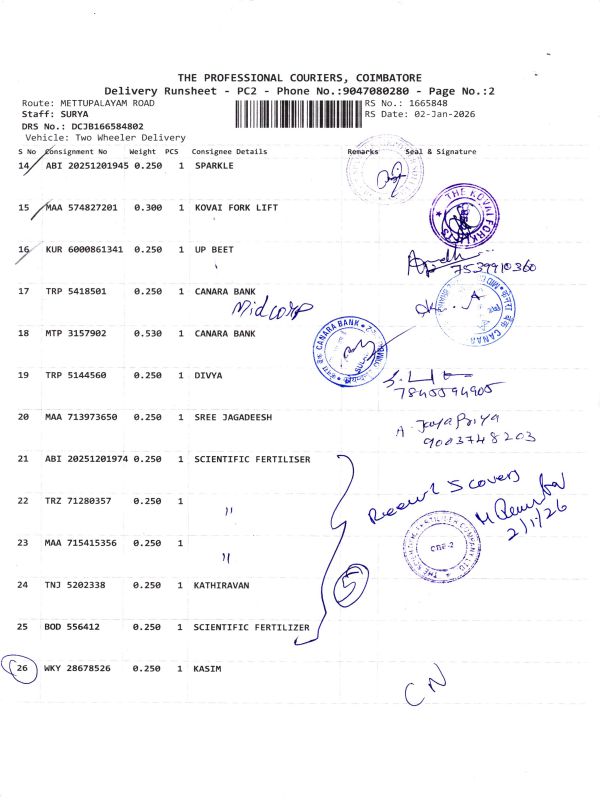 THE PROFESSIONAL COURIERS, COIMBATORE
Delivery Runsheet - PC2 - Phone No.:9047080280 - Page No.:2
Route: METTUPALAYAM ROAD RS No.: 1665848
Staff: SURYA RS Date: 02-Jan-2026
DRS No.: DCJB166584802
Vehicle: Two Wheeler Delivery
S No Consignment No Weight PCS Consignee Details Remarks Seal & Signature
14 ABI 20251201945 0.250 1 SPARKLE
15 MAA 574827201 0.300 1 KOVAI FORK LIFT
THE KOVAI FORK
16 KUR 6000861341 0.250 1 UP BEET
7539910360
17 TRP 5418501 0.250 1 CANARA BANK
Midcorp
18 MTP 3157902 0.530 1 CANARA BANK
CANARA BANK
19 TRP 5144560 0.250 1 DIVYA
7845594905
20 MAA 713973650 0.250 1 SREE JAGADEESH
A. Jaya Priya
9003748203
21 ABI 20251201974 0.250 1 SCIENTIFIC FERTILISER
5 covers
22 TRZ 71280357 0.250 1 "
2/1/26
23 MAA 715415356 0.250 1 "
CBE-2
24 TNJ 5202338 0.250 1 KATHIRAVAN
5
25 BOD 556412 0.250 1 SCIENTIFIC FERTILIZER
26 WKY 28678526 0.250 1 KASIM
CN